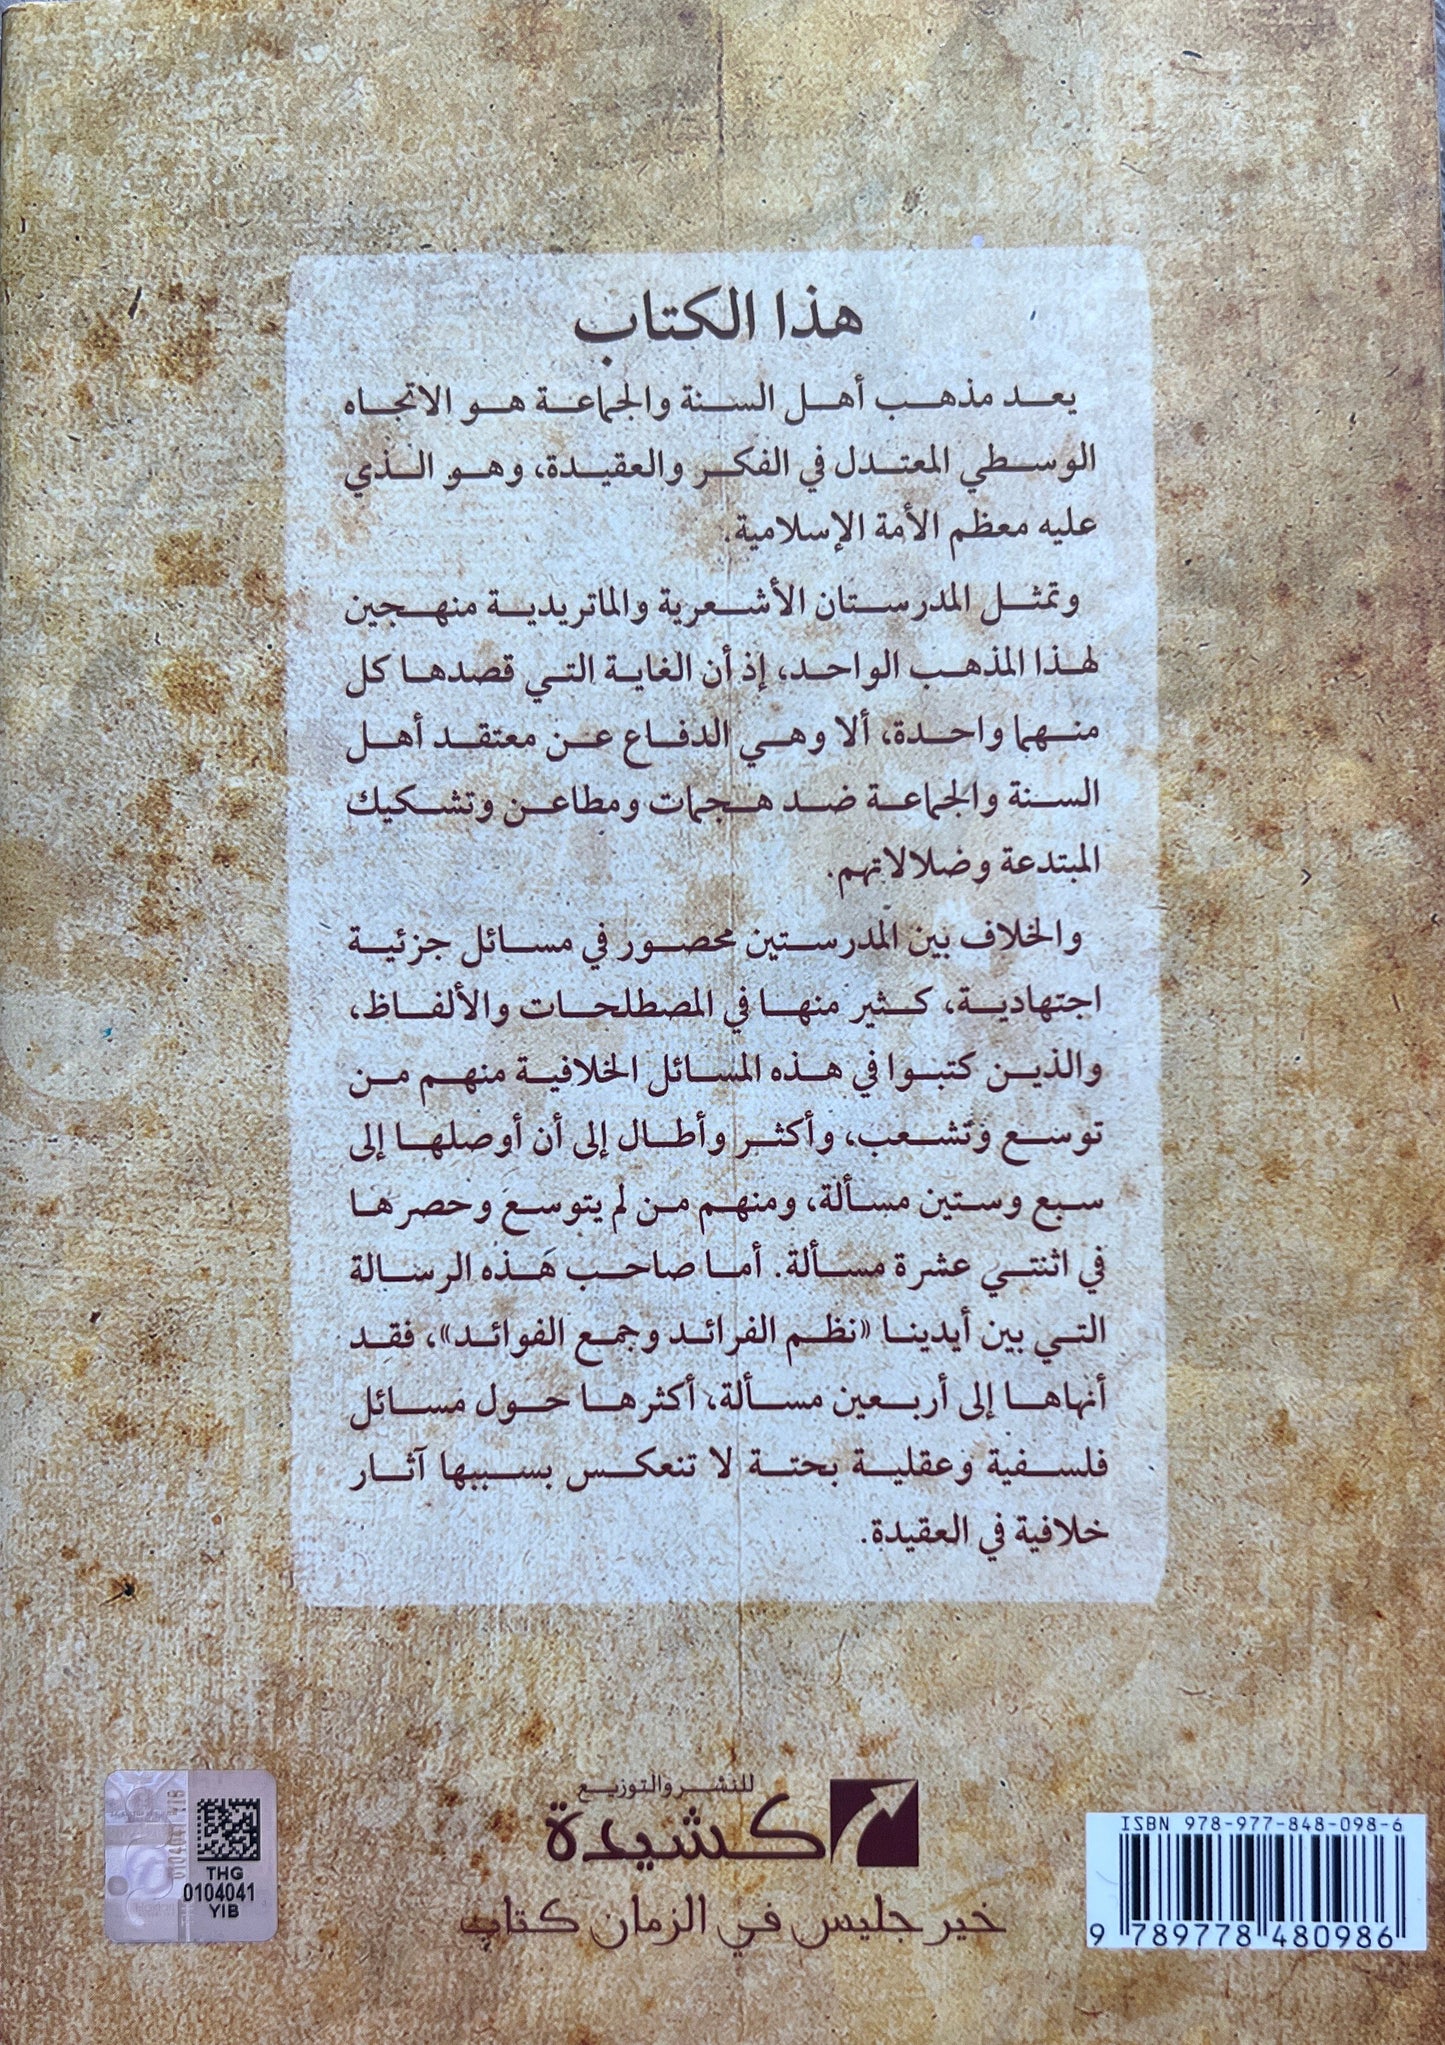 هذا الكتاب
يعد مذهب أهل السنة والجماعة هو الاتجاه
الوسطي المعتدل في الفكر والعقيدة، وهو الذي
عليه معظم الأمة الإسلامية.
وتمثل المدرستان الأشعرية والماتريدية منهجين
لهذا المذهب الواحد، إذ أن الغاية التي قصدها كل
منهما واحدة، ألا وهي الدفاع عن معتقد أهل
السنة والجماعة ضد هجمات ومطاعن وتشكيك
المبتدعة وضلالاتهم.
والخلاف بين المدرستين محصور في مسائل جزئية
اجتهادية، كثير منها في المصطلحات والألفاظ،
والذين كتبوا في هذه المسائل الخلافية منهم من
توسع وتشعب، وأكثر وأطال إلى أن أوصلها إلى
سبع وستين مسألة، ومنهم من لم يتوسع وحصرها
في اثنتي عشرة مسألة. أما صاحب هذه الرسالة
التي بين أيدينا «نظم الفرائد وجمع الفوائد»، فقد
أنهاها إلى أربعين مسألة، أكثرها حول مسائل
فلسفية وعقلية بحتة لا تنعكس بسببها آثار
خلافية في العقيدة.
للنشر والتوزيع
كشيدة
خير جليس في الزمان كتاب
THG
0104041
YIB
ISBN 978-977-848-098-6
9 789778 480986